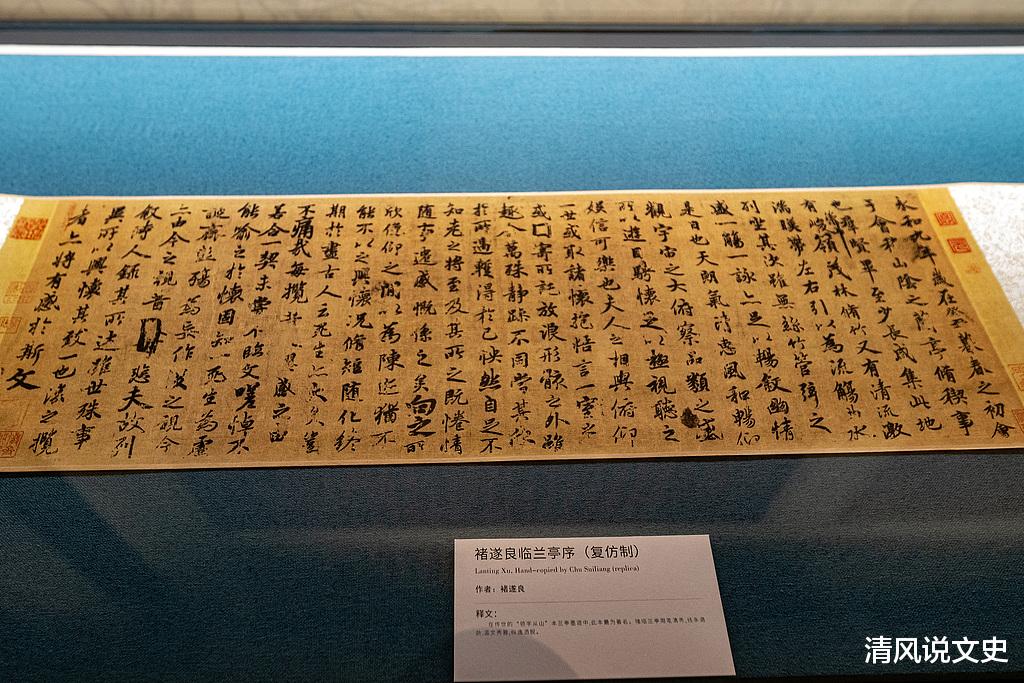 永和九年歲在癸丑暮春之初會
于會稽山陰之蘭亭脩禊事
也群賢畢至少長咸集此地
有峻領茂林脩竹又有清流激
湍暎帶左右引以為流觴曲水
列坐其次雖無絲竹管弦之
盛一觴一詠亦足以暢敘幽情
是日也天朗氣清惠風和暢仰
觀宇宙之大俯察品類之盛
所以遊目騁懷足以極視聽之
娛信可樂也夫人之相與俯仰
一世或取諸懷抱悟言一室之
或因寄所託放浪形骸之外雖
趣舍萬殊靜躁不同當其欣
於所遇蹔得於己怏然自足不
知老之將至及其所之既惓情
隨事遷感慨係之矣向之所
欣俛仰之閒以為陳迹猶不
能不以之興懷況脩短隨化終
期於盡古人云死生亦大矣豈
不痛哉每攬昔人興感之由
若合一契未嘗不臨文嗟悼不
能喻之於懷固知一死生為虛
誕齊彭殤為妄作後之視今
亦由今之視昔悲夫故列
敘時人錄其所述雖世殊事
異所以興懷其致一也後之攬
者亦將有感於斯文
褚遂良临兰亭序（复仿制）
Lanting Xu, Hand-copied by Chu Suiliang (replica)
作者：褚遂良
释文：
在传世的“领字从山”本兰亭墨迹中,此本最为著名。
清风说文史